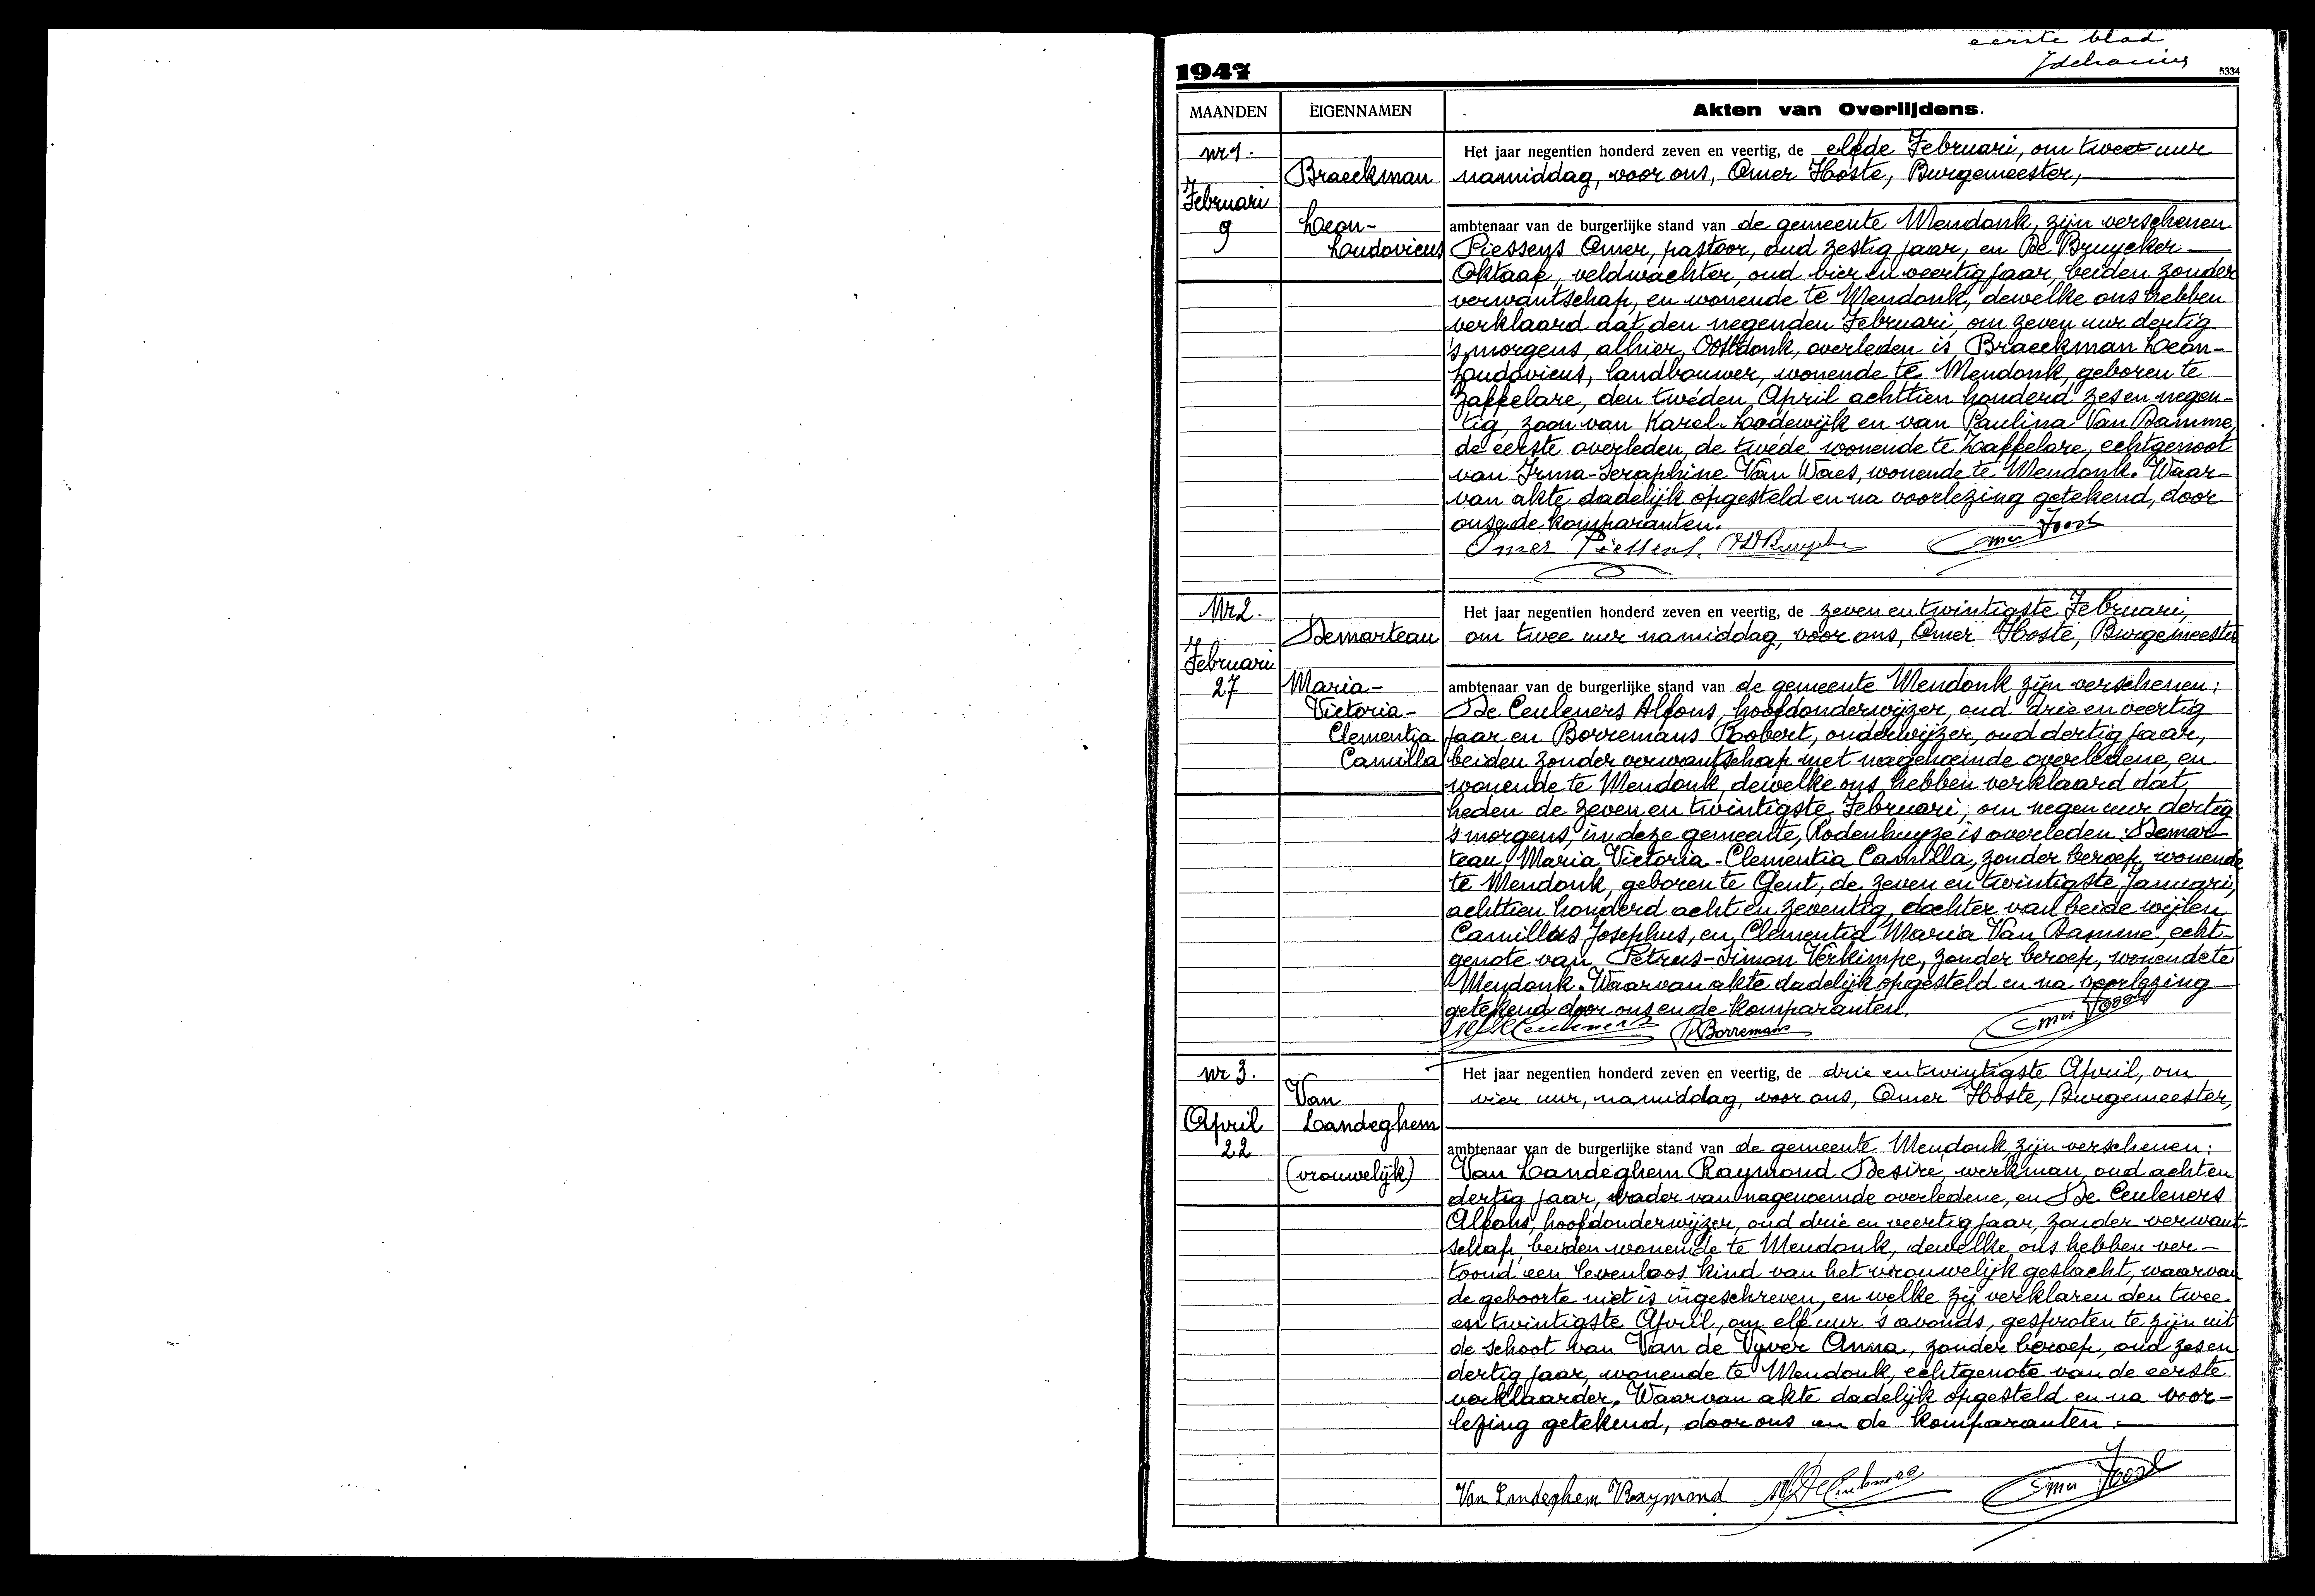 eerste blad
1947
5334
MAANDEN EIGENNAMEN Akten van Overlijdens.
nr 1.
Februari
9
Braeckman
Leon-
Loudovicus
Het jaar negentien honderd zeven en veertig, de elfde Februari, om twee uur
namiddag, voor ons, Omer Hoste, Burgemeester,
ambtenaar van de burgerlijke stand van de gemeente Mendonk, zijn verschenen
Piessens Omer, pastoor, oud zestig jaar, en De Bruycker
Oktaaf, veldwachter, oud vier en veertig jaar, beiden zonder
verwantschap, en wonende te Mendonk, dewelke ons hebben
verklaard dat den negenden Februari, om zeven uur dertig
's morgens, alhier, Oostdonk, overleden is Braeckman Leon-
Loudovicus, landbouwer, wonende te Mendonk, geboren te
Zaffelare, den tweden April achttien honderd zes en negen-
tig, zoon van Karel-Lodewijk en van Paulina Van Damme,
de eerste overleden, de twede wonende te Zaffelare, echtgenoot
van Irma-Seraphine Van Waes, wonende te Mendonk. Waar-
van akte dadelijk opgesteld en na voorlezing getekend, door
ons en de komparanten.
Omer Piessens. Omer Hoste
Nr 2.
Februari
27
Demarteau
Maria-
Victoria-
Clementia
Camilla
Het jaar negentien honderd zeven en veertig, de zeven en twintigste Februari,
om twee uur namiddag, voor ons, Omer Hoste, Burgemeester
ambtenaar van de burgerlijke stand van de gemeente Mendonk zijn verschenen:
De Ceuleners Alfons, hoofdonderwijzer, oud drie en veertig
jaar en Borremans Robert, onderwijzer, oud dertig jaar,
beiden zonder verwantschap met nagenoemde overledene, en
wonende te Mendonk, dewelke ons hebben verklaard dat
heden de zeven en twintigste Februari, om negen uur dertig
's morgens, in deze gemeente, Rodenhuyze is overleden: Demar
teau Maria Victoria-Clementia Camilla, zonder beroep, wonende
te Mendonk, geboren te Gent, de zeven en twintigste Januari,
achttien honderd acht en zeventig, dochter van beide wijlen
Camillus Josephus, en Clementia Maria Van Damme, echt-
genote van Petrus-Simon Verkimpe, zonder beroep, wonende te
Mendonk. Waarvan akte dadelijk opgesteld en na voorlezing
getekend door ons en de komparanten.
R Borremans Omer Hoste
nr 3.
April
22
Van
Landeghem
(vrouwelijk)
Het jaar negentien honderd zeven en veertig, de drie en twintigste April, om
vier uur, namiddag, voor ons, Omer Hoste, Burgemeester,
ambtenaar van de burgerlijke stand van de gemeente Mendonk zijn verschenen:
Van Landeghem Raymond Desiré, werkman, oud acht en
dertig jaar, vader van nagenoemde overledene, en De Ceuleners
Alfons, hoofdonderwijzer, oud drie en veertig jaar, zonder verwant-
schap, beiden wonende te Mendonk, dewelke ons hebben ver-
toond een levenloos kind van het vrouwelijk geslacht, waarvan
de geboorte niet is ingeschreven, en welke zij verklaren den twee
en twintigste April, om elf uur 's avonds, gesproten te zijn uit
de schoot van Van de Vyver Anna, zonder beroep, oud zes en
dertig jaar, wonende te Mendonk, echtgenote van de eerste
verklaarder. Waarvan akte dadelijk opgesteld en na voor-
lezing getekend, door ons en de komparanten.
Van Landeghem Raymond Omer Hoste